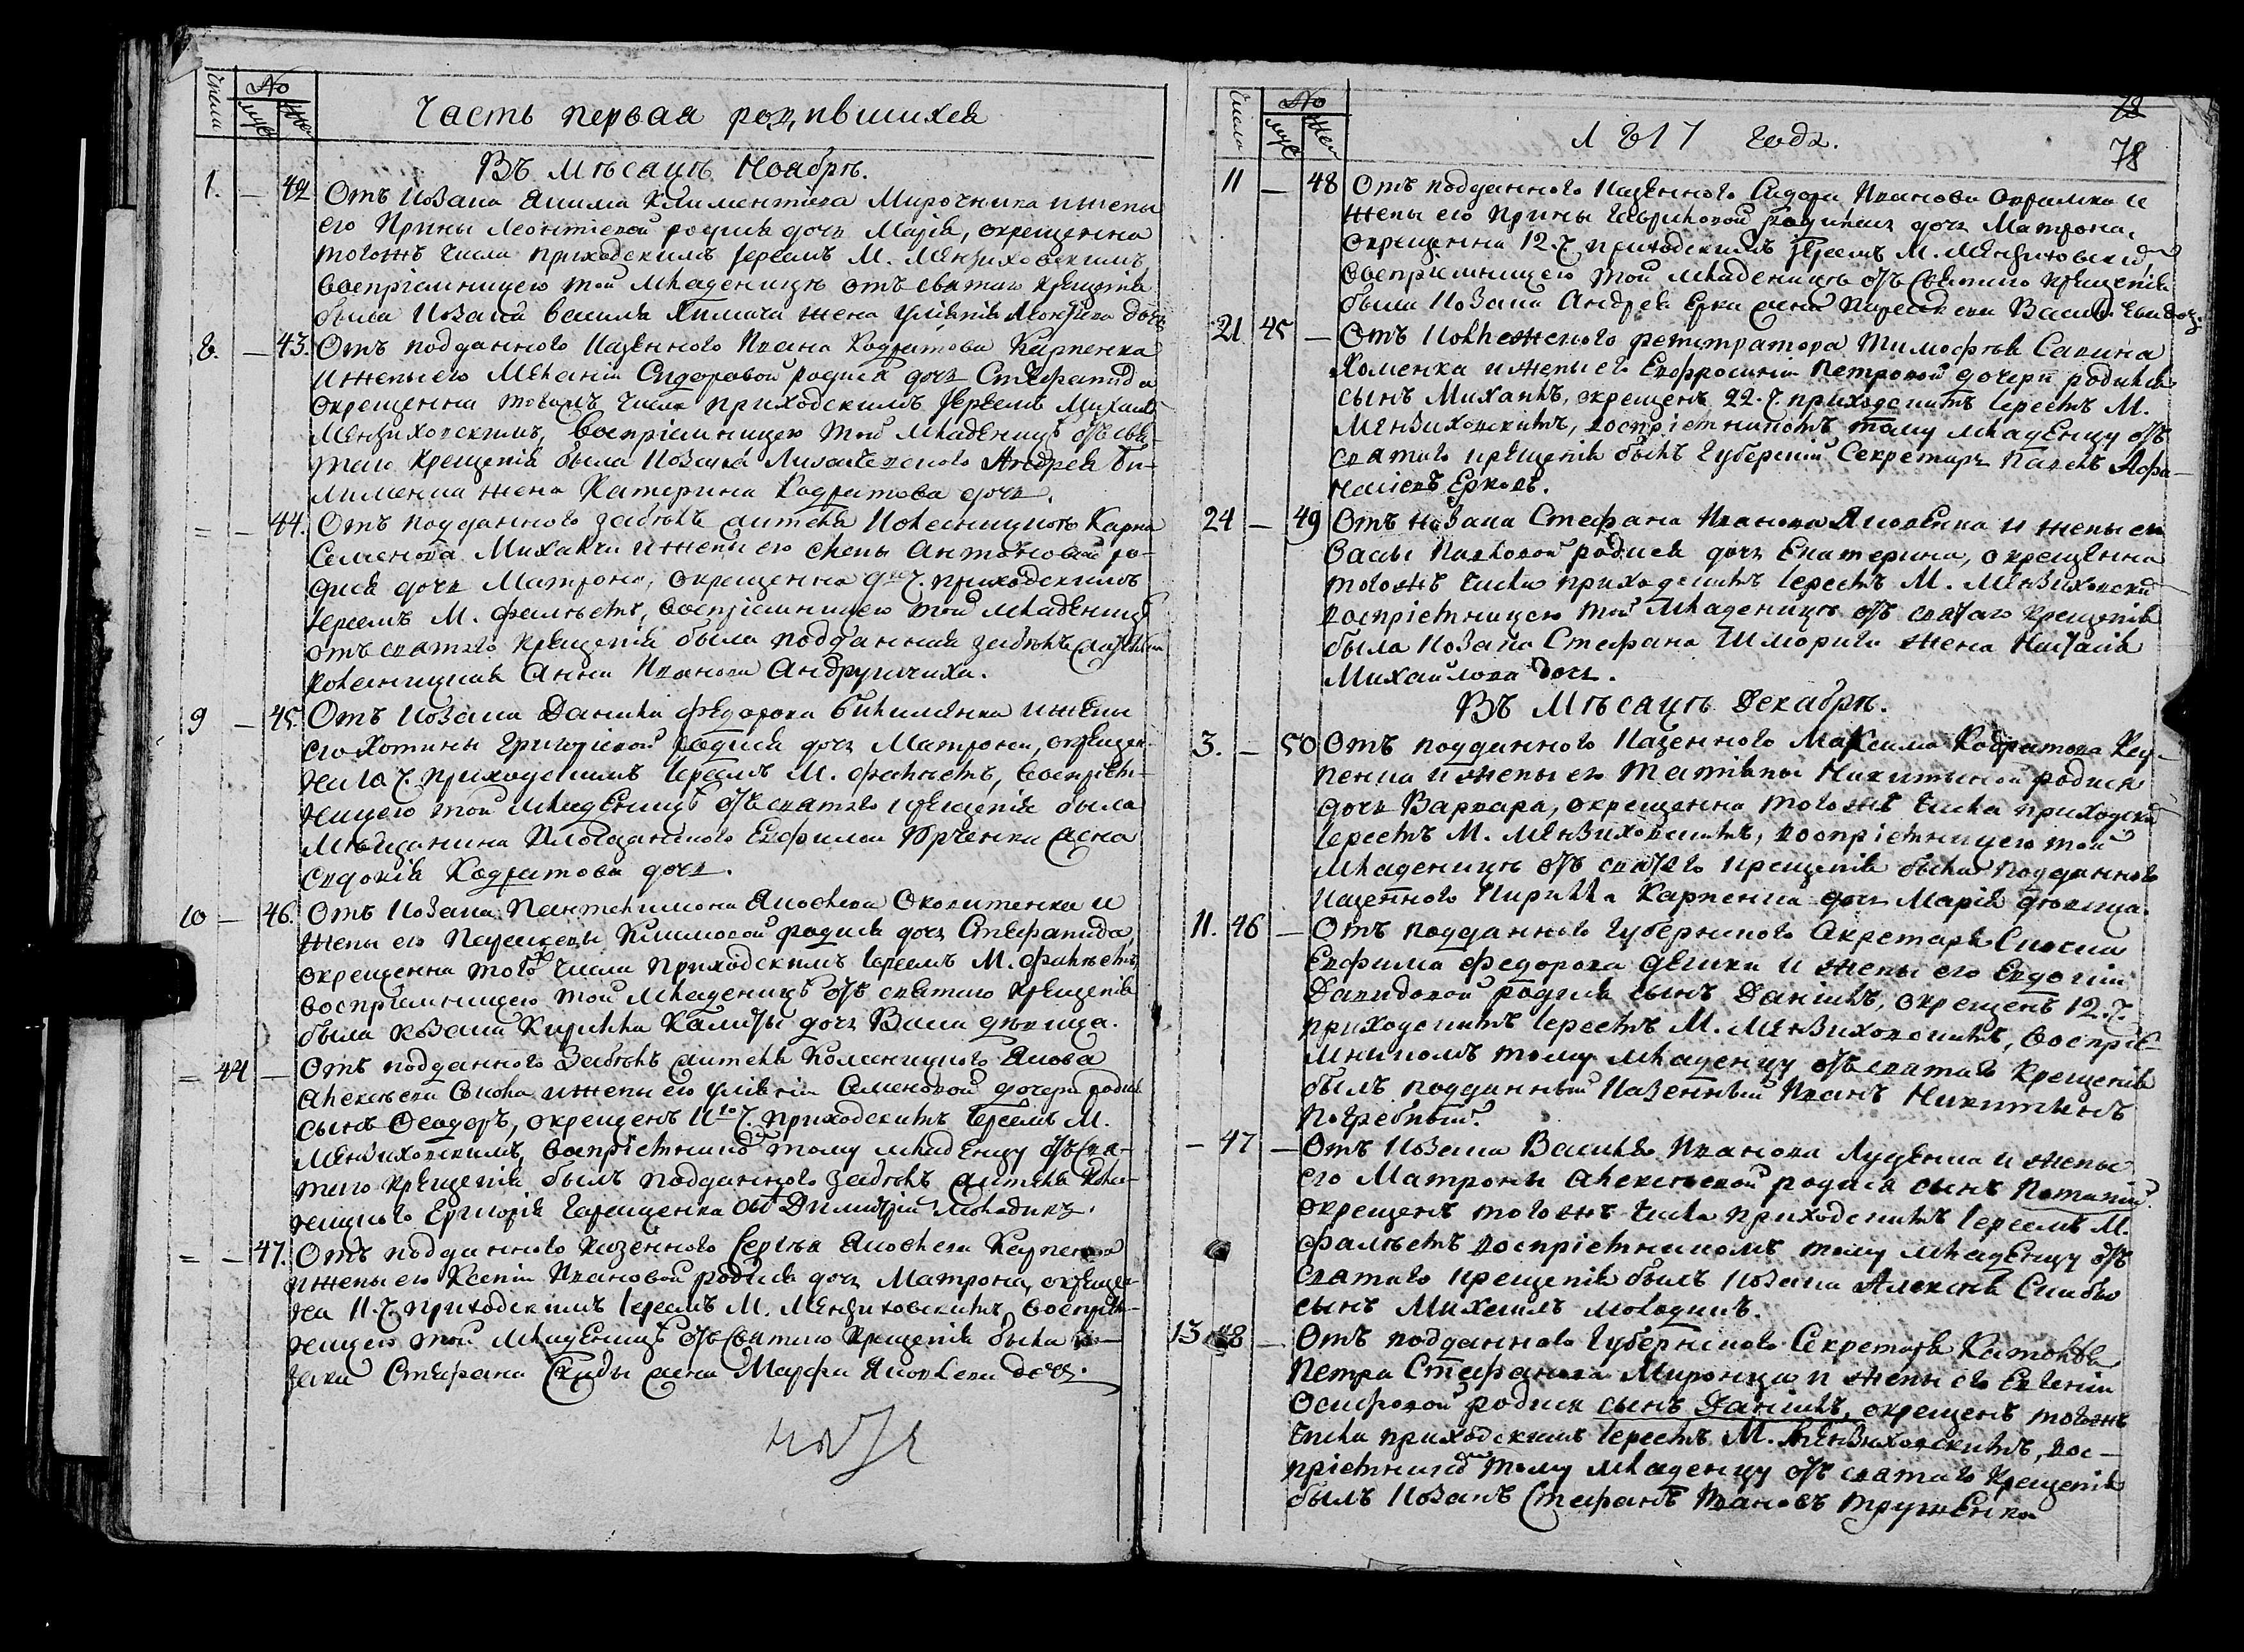 Числа № муж жен
Часть первая родившихся
Въ Мѣсацѣ Ноябрѣ.
1. — 42 Отъ козака Якима Климентіева Мирочника и жены
его Ирины Леонтіевой родися дочь Марія, окрещенна
тогожъ числа приходскимъ Іереемъ М. Мензиховскимъ
воспріемницею той младеницѣ отъ святаго крещенія
была козака Василя жена Уліянія дочь
8. — 43. Отъ подданного казенного Ивана Кодратова Карпенка
и жены его Меланіи Сидоровой родися дочь Стефанида
окрещенна тогожъ числа приходскимъ Іереемъ Михаил.
Мензиховскимъ, воспріемницею той младеницѣ отъ свя-
таго крещенія была козака Андрея Би-
лименка жена Катерина Кодратова дочь.
= — 44. Отъ подданного
Семенова и жены его Елены Антоновой ро-
дися дочь Матрона, окрещенна 9 ч. приходскимъ
Іереемъ М. Фалѣетъ, воспріемницею той младеницѣ
отъ святаго крещенія была подданная
Анна Иванова Андрущиха.
9 — 45. Отъ козака Данила Федорова Билименка и жены
его Хотины Григоріевой родися дочь Матрона, окрещен-
на 10 ч. приходскимъ Іереемъ М. Фалѣетъ, воспріем-
ницею той младеницѣ отъ святаго крещенія была
мѣщанина Евфима Юрченка жена
Евдокія Кодратова дочь.
10 — 46. Отъ козака Пантелимона Яковлева Околитенка и
жены его Параскевы Климовой родися дочь Стефанида
окрещенна того ж числа приходскимъ Іереемъ М. Фалѣетъ,
воспріемницею той младеницѣ отъ святаго крещенія
была козака Кирилла дочь Васа дѣвица.
= 44 — Отъ подданного
Алексѣева и жены его Уліяніи Семеновой дочери родися
сынъ Феодоръ, окрещенъ 11го ч. приходскимъ Іереемъ М.
Мензиховскимъ, воспріемникомъ тому младенцу отъ свя-
таго крещенія былъ подданного
Григорія Геращенка сынъ Димитрій молодикъ.
= — 47. Отъ подданного казенного Сергѣя Яковлева Карпенка
и жены его Ксеніи Ивановой родися дочь Матрона, окрещен-
на 11. ч. приходскимъ Іереемъ М. Мензиховскимъ, воспріем-
ницею той младеницѣ отъ святаго крещенія была ко-
зака Стефана жена Марфа Яковлева дочь.
Числа № муж жен
1817 года.
78
78
11 — 48 Отъ подданного казенного Сидора Иванова и
жены его Ирины Гавриловой родилась дочь Матрона,
окрещенна 12. ч. приходскимъ Іереемъ М. Мензиховским
воспріемницею той младеницѣ отъ святаго крещенія
была козака Андрея жена Параскева дочь.
21 45 — Отъ коллежского регистратора Тимофѣя Савина
Хоменка и жены его Евфросиніи Петровой дочери родися
сынъ Михаилъ, окрещенъ 22. ч. приходскимъ Іереемъ М.
Мензиховскимъ, воспріемникомъ тому младенцу отъ
святаго крещенія былъ Губерскій Секретарь Павелъ Афа-
насіевъ Ерковъ.
24 — 49 Отъ козака Стефана Иванова Яковенка и жены его
Васы Павловой родися дочь Екатерина, окрещенна
тогожъ числа приходскимъ Іереемъ М. Мензиховским
воспріемницею той младеницѣ отъ святаго крещенія
была козака Стефана жена Наталія
Михайлова дочь.
Въ Мѣсацѣ Декабрѣ.
3. — 50 Отъ подданного казенного Максима Кодратова Кар-
пенка и жены его Татіяны Никитиной родися
дочь Варвара, окрещенна тогожъ числа приходским
Іереемъ М. Мензиховскимъ, воспріемницею той
младеницѣ отъ святаго крещенія была подданного
казенного Кирилла Карпенка дочь Марія дѣвица.
11. 46 — Отъ подданного Губернского Секретаря
Евфима Федорова и жены его Евдокіи
Давидовой родися сынъ Даніилъ, окрещенъ 12. ч.
приходскимъ Іереемъ М. Мензиховскимъ, воспріе-
мникомъ тому младенцу отъ святаго крещенія
былъ подданный казенный Иванъ Никитинъ
Погребный.
— 47 — Отъ козака Василя Иванова Луценка и жены
его Матроны Алексѣевой родися сынъ Потапій
окрещенъ тогожъ числа приходскимъ Іереемъ М.
Фалѣетъ воспріемникомъ тому младенцу отъ
святаго крещенія былъ козака Алексѣя
сынъ Михаилъ молодикъ.
13 48 — Отъ подданного Губернского Секретаря
Петра Стефанова Миронца и жены его Евгеніи
Осиповой родися сынъ Даніилъ, окрещенъ тогожъ
числа приходскимъ Іереемъ М. Мензиховскимъ, вос-
пріемником тому младенцу отъ святаго крещенія
былъ козакъ Стефанъ Ивановъ